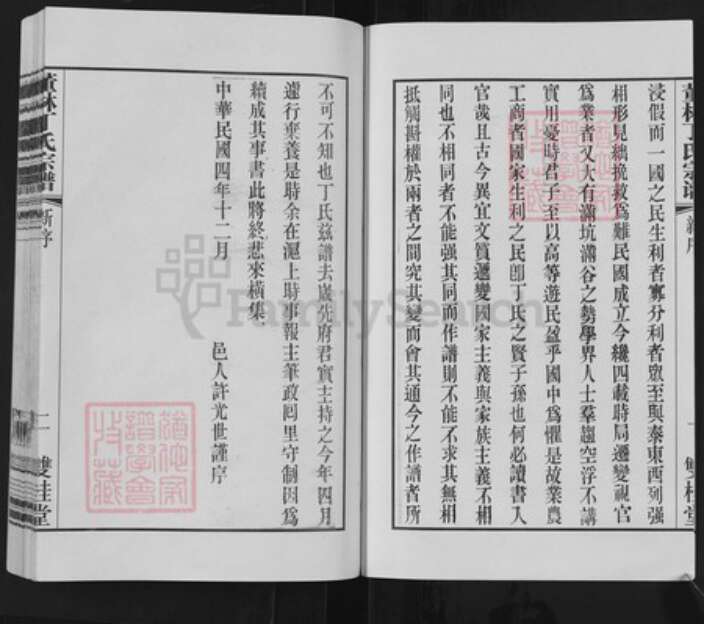 浸假而一國之民生利者寡分利者眾至與泰東西列强
相形見絀挽救爲難民國成立今纔四載時局遷變視官
爲業者又大有滿坑滿谷之勢學界人士羣趨空浮不講
實用憂時君子至以高等遊民盈乎國中爲懼是故業農
工商者國家生利之民卽丁氏之賢子孫也何必讀書入
官哉且古今異宜文質遞變國家主義與家族主義不相
同也不相同者不能强其同而作譜則不能不求其無相
抵觸斟權於兩者之間究其變而會其通今之作譜者所
雙桂堂
不可不知也丁氏茲譜去歲先府君實主持之今年四月
遽行棄養是時余在滬上時事報主筆政囘里守制因爲
續成其事書此將終悲來橫集
中華民國四年十二月
邑人許光世謹序
丁氏宗譜
新序
二
雙桂堂
FamilySearch